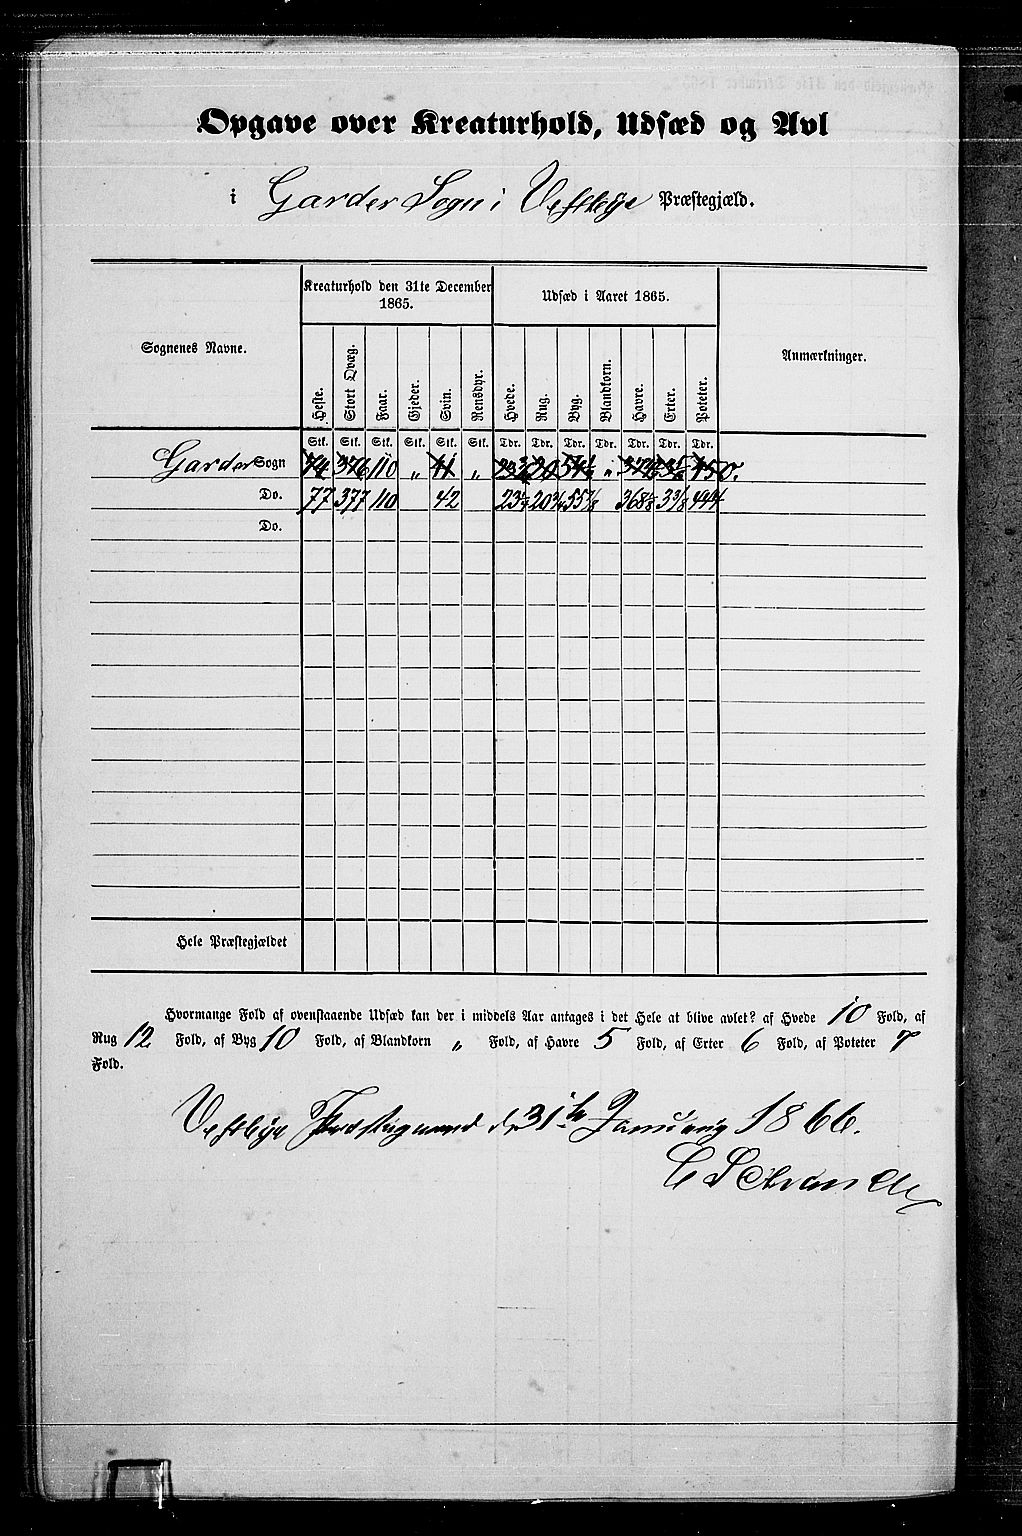 Opgave over Kreaturhold, Udsæd og Avl
i Garder Sogn i Vestbye Præstegjæld.
Sognenes Navne.
Kreaturhold den 31te December 1865.
Udsæd i Aaret 1865.
Anmærkninger.
Heste. Stort Qvæg. Faar. Gjeder. Svin. Rensdyr. Hvede. Rug. Byg. Blandkorn. Havre. Erter. Poteter.
Stk. Stk. Stk. Stk. Stk. Stk. Tdr. Tdr. Tdr. Tdr. Tdr. Tdr. Tdr.
Garder Sogn 74 376 110 „ 41 „ „ 450.
Do. 77 377 110 42 20¾ 55⅞ 368⅝ 3⅜ 444
Do.
Hele Præstegjældet
Hvormange Fold af ovenstaaende Udsæd kan der i middels Aar antages i det Hele at blive avlet? af Hvede 10 Fold, af
Rug 12 Fold, af Byg 10 Fold, af Blandkorn „ Fold, af Havre 5 Fold, af Erter 6 Fold, af Poteter 7
Fold.
Vestbye Præstegaard d. 31te Januar 1866.